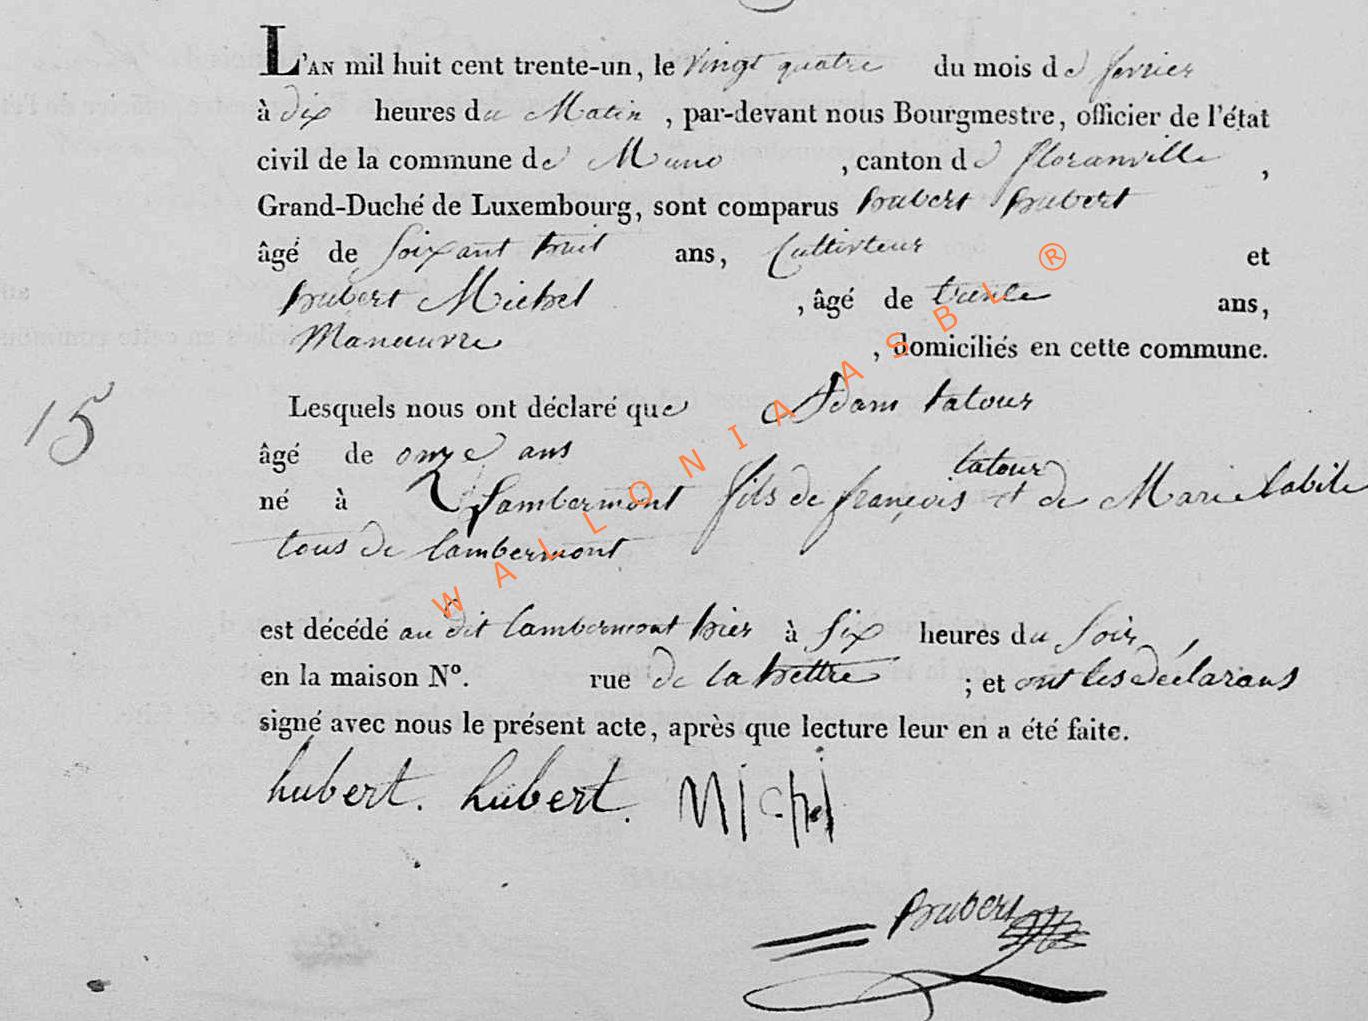 L'AN mil huit cent trente-un, le vingt quatre du mois de fevrier
à dix heures du Matin, par-devant nous Bourgmestre, officier de l'état
civil de la commune de Muno, canton de floranville,
Grand-Duché de Luxembourg, sont comparus hubert hubert
âgé de soixant huit ans, Cultivteur et
hubert Michel, âgé de trente ans,
Manœuvre, domiciliés en cette commune.
15
Lesquels nous ont déclaré que Adam latour
âgé de onze ans
né à Lambermont fils de françois latour et de Marie labile
tous de lambermont
est décédé au dit lambermont hier à six heures du soir
en la maison N°. rue de la hettre ; et ont les déclarans
signé avec nous le présent acte, après que lecture leur en a été faite.
hubert. hubert. Michel
hubert
WALLONIA ASBL ®